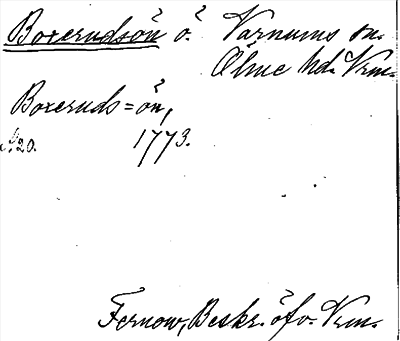 Boxerudsön ö. Varnums sn.
Ölme hd. Vrm.
Boxeruds=ön,
s. 20. 1773.
Fernow, Beskr. öfv. Vrm.